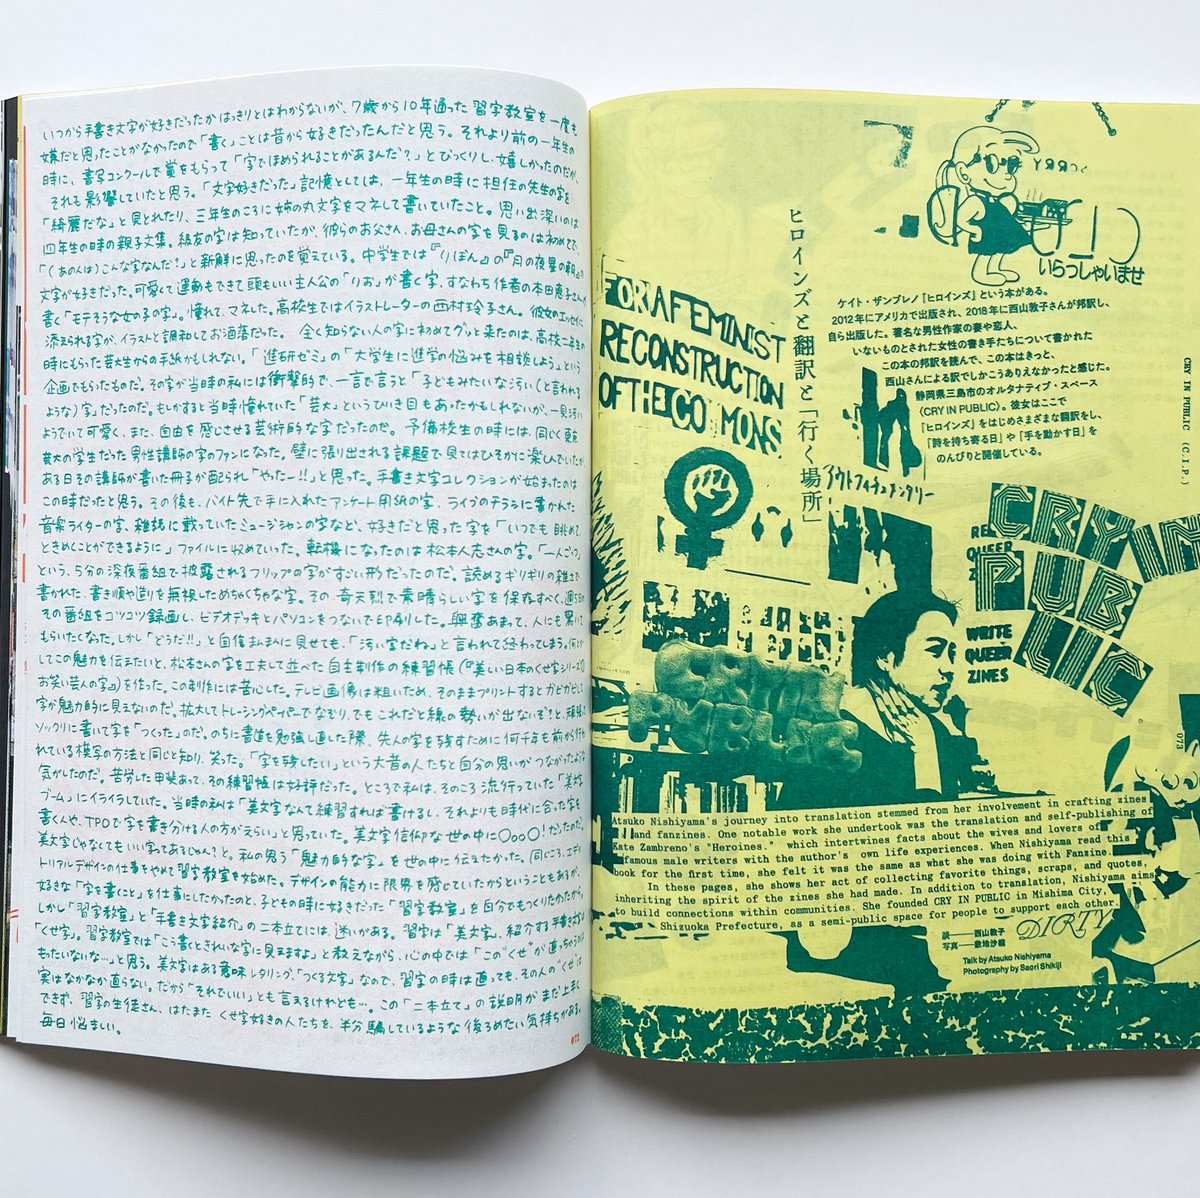 いつから手書き文字が好きだったかはっきりとはわからないが、7歳から10年通った習字教室を一度も
嫌だと思ったことがなかったので「書く」ことは昔から好きだったんだと思う。それより前の一年生の
時に、書写コンクールで賞をもらって「字でほめられることがあるんだ?」とびっくりし、嬉しかったのだが、
それも影響していたと思う。「文字好きだった」記憶としては、一年生の時に担任の先生の字を
「綺麗だな」と見とれたり、三年生のころに姉の丸文字をマネして書いていたこと。思い出深いのは
四年生の時の親子文集。級友の字は知っていたが、彼らのお父さん、お母さんの字を見るのは初めてで、
「(あの人は)こんな字なんだ?」と新鮮に思ったのを覚えている。中学生では『りぼん』の『月の夜星の朝』の
文字が好きだった。可愛くて運動もできて頭もいい主人公の「りお」が書く字、すなわち作者の本田恵子さんが
書く「モテそうな女の子の字」。憧れて、マネした。高校生ではイラストレーターの西村玲子さん。彼女のエッセイに
添えられる字が、イラストと調和してお洒落だった。 全く知らない人の字に初めてグッと来たのは、高校二年の
時にもらった芸大生からの手紙かもしれない。「進研ゼミ」の「大学生に進学の悩みを相談しよう」という
企画でもらったものだ。その字が当時の私には衝撃的で、一言で言うと「子どもみたいな汚い(と言われる
ような)字」だったのだ。もしかすると当時憧れていた「芸大」というひいき目もあったかもしれないが、一見汚い
ようでいて可愛く、また、自由を感じさせる芸術的な字だったのだ。 予備校生の時には、同じく東京
芸大の学生だった男性講師の字のファンになった。壁に張り出される課題で見てはひそかに楽しんでいたが、
ある日その講師が書いた冊子が配られ「やったー!!」と思った。手書き文字コレクションが始まったのは
この時だったと思う。その後も、バイト先で手に入れたアンケート用紙の字、ライブのチラシに書かれた
音楽ライターの字、雑誌に載っていたミュージシャンの字など、好きだと思った字を「いつでも眺めて
ときめくことができるように」ファイルに収めていった。転機になったのは松本人志さんの字。『一人ごっつ』
という、5分の深夜番組で披露されるフリップの字がすごい形だったのだ。読めるギリギリの雑さで
書かれた、書き順や造りを無視しためちゃくちゃな字。その奇天烈で素晴らしい字を保存すべく、週5日
その番組をコツコツ録画し、ビデオデッキとパソコンをつないで印刷した。興奮あまって、人にも驚いて
もらいたくなった。しかし「どうだ!!」と自信まんまに見せても、「汚い字だね」と言われて終わってしまう。何と
してこの魅力を伝えたいと、松本さんの字を工夫して並べた自主制作の練習帳(『美しい日本のくせ字シリーズ①
お笑い芸人の字』)を作った。この制作には苦心した。テレビ画像は粗いため、そのままプリントするとガビガビして
字が魅力的に見えないのだ。拡大してトレーシングペーパーでなぞり、でもこれだと線の勢いが出ないぞ?と、頑張って
ソックリに書いて字を「つくった」のだ。のちに書道を勉強し直した際、先人の字を残すために何千年も前から行わ
れている模写の方法と同じと知り、笑った。「字を残したい」という大昔の人たちと自分の思いがつながったような
気がしたのだ。苦労した甲斐あって、その練習帳は好評だった。ところで私は、そのころ流行っていた「美文字
ブーム」にイライラしていた。当時の私は「美文字なんて練習すれば書けるし、それよりも時代に合った字を
書く人や、TPOで字を書き分ける人の方がえらい」と思っていた。美文字信仰な世の中に〇〇〇〇!だったのだ。
美文字じゃなくてもいい字ってあるじゃん?と。私の思う「魅力的な字」を世の中に伝えたかった。同じころ、エディ
トリアルデザインの仕事をやめて習字教室を始めた。デザインの能力に限界を感じていたからということもあるが、
好きな「字を書くこと」を仕事にしたかったのと、子どもの時に好きだった「習字教室」を自分でもつくりたかったから。
しかし「習字教室」と「手書き文字紹介」の二本立てには、迷いがある。習字は「美文字」、紹介する手書き文字は
「くせ字」。習字教室では「こう書くときれいな字に見えますよ」と教えながら、心の中では「この"くせ"が直っちゃうのは
もったいないな…」と思う。美文字はある意味レタリング、「つくる文字」なので、習字の時は直っても、その人の"くせ"は
実はなかなか直らない。だから「それでいい」とも言えるけれども…。この「二本立て」の説明がまだ上手く
できず、習字の生徒さん、はたまたくせ字好きの人たちを、半分騙しているような後ろめたい気持ちがある。
毎日悩ましい。
072
いらっしゃいませ
ヒロインズと翻訳と「行く場所」
ケイト・ザンブレノ『ヒロインズ』という本がある。
2012年にアメリカで出版され、2018年に西山敦子さんが邦訳し、
自ら出版した。著名な男性作家の妻や恋人、
いないものとされた女性の書き手たちについて書かれた
この本の邦訳を読んで、この本はきっと、
西山さんによる訳でしかこうありえなかったと感じた。
静岡県三島市のオルタナティブ・スペース
〈CRY IN PUBLIC〉。彼女はここで
『ヒロインズ』をはじめさまざまな翻訳をし、
「詩を持ち寄る日」や「手を動かす日」を
のんびりと開催している。
FOR A FEMINIST
RECONSTRUCTION
OF THE COMMONS
CRY IN PUBLIC (C.I.P.)
073
CRY IN
PUB
LIC
QUEER
WRITE
QUEER
ZINES
Atsuko Nishiyama's journey into translation stemmed from her involvement in crafting zines
and fanzines. One notable work she undertook was the translation and self-publishing of
Kate Zambreno's "Heroines." which intertwines facts about the wives and lovers of
famous male writers with the author's own life experiences. When Nishiyama read this
book for the first time, she felt it was the same as what she was doing with Fanzine.
In these pages, she shows her act of collecting favorite things, scraps, and quotes,
inheriting the spirit of the zines she had made. In addition to translation, Nishiyama aims
to build connections within communities. She founded CRY IN PUBLIC in Mishima City,
Shizuoka Prefecture, as a semi-public space for people to support each other.
DIRTY
談——西山敦子
写真——敷地沙織
Talk by Atsuko Nishiyama
Photography by Saori Shikiji